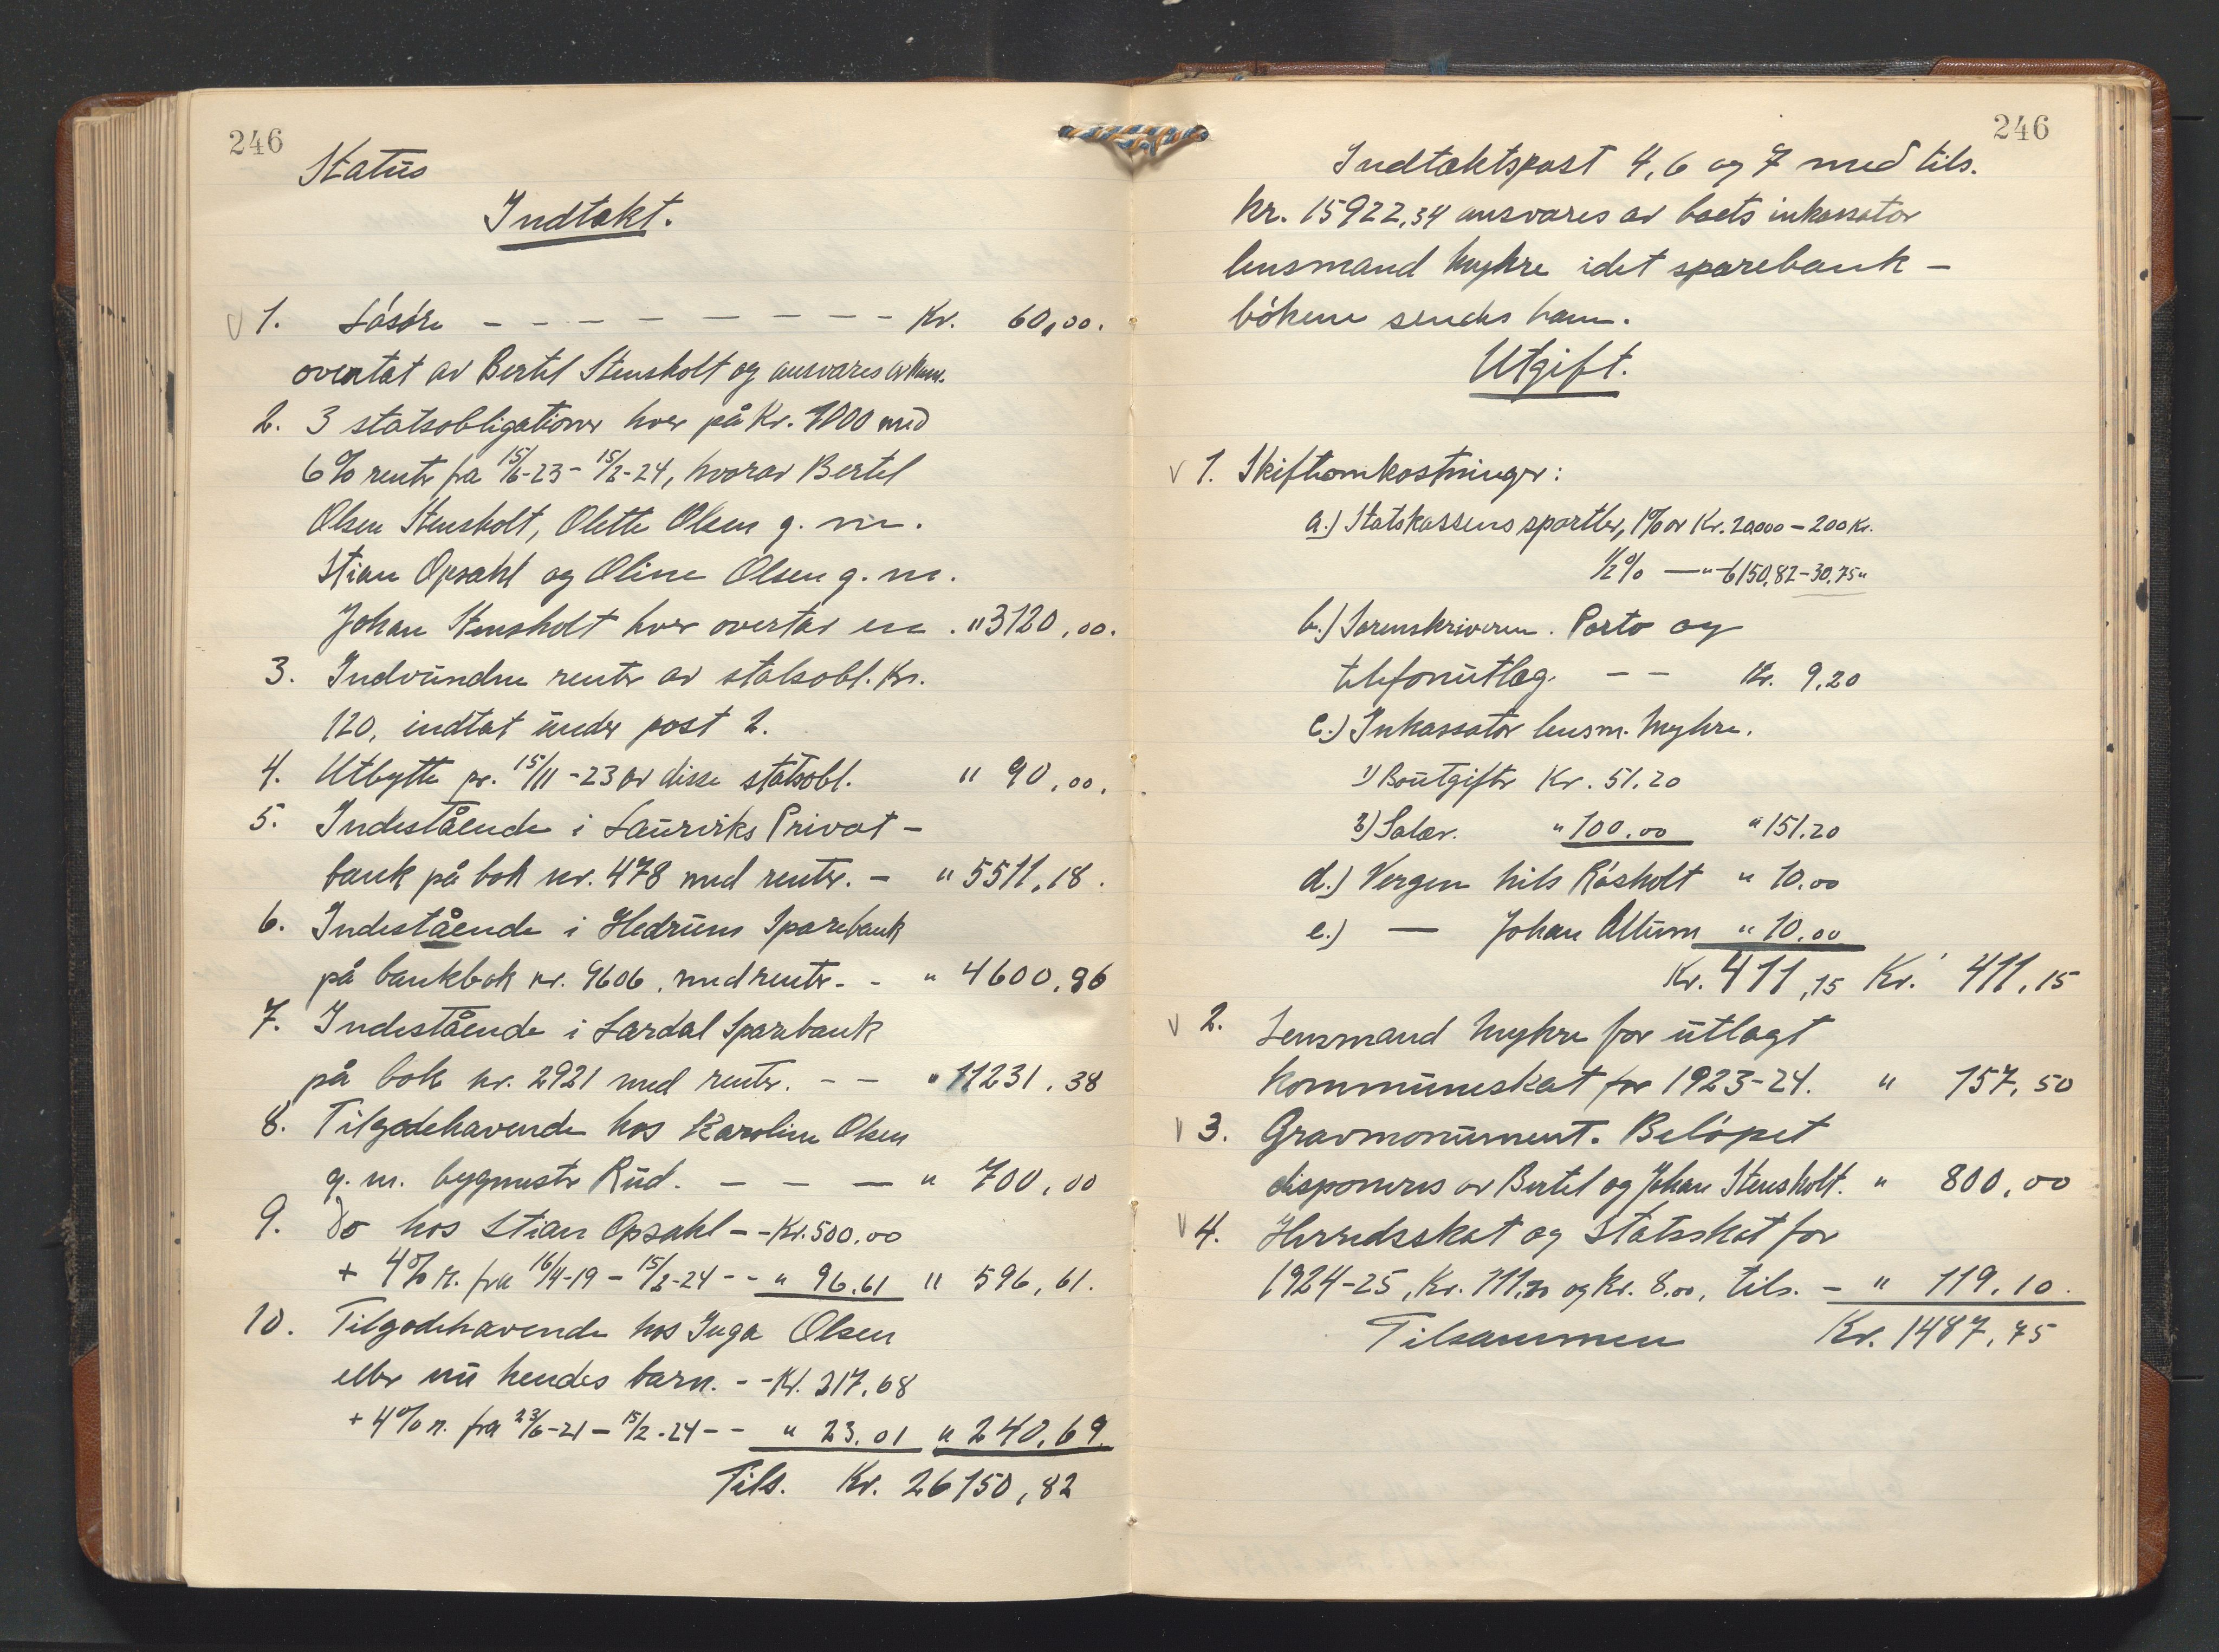 246
Status
Indtækt.
1. Løsøre - - - - - - - - Kr. 60,00.
overtat av Bertel Stensholt og ansvares av ham.
2. 3 statsobligationer hver på Kr. 1000 med
6% renter fra 15/6-23 - 15/2-24, hvorav Bertel
Olsen Stensholt, Olette Olsen g. m.
Stian Opsahl og Oline Olsen g. m.
Johan Stensholt hver overtar en . " 3120,00.
3. Indvundne renter av statsobl. Kr.
120, indtat under post 2.
4. Utbytte pr. 15/11-23 av disse statsobl. " 90,00.
5. Indestående i Laurviks Privat-
bank på bok nr. 478 med renter. - " 5511,18.
6. Indestående i Hedrums Sparebank
på bankbok nr. 9606. med renter - - " 4600,96
7. Indestående i Lardal Sparebank
på bok nr. 2921 med renter. - - " 11231,38
8. Tilgodehavende hos Karoline Olsen
g. m. bygmester Rud. - - - " 700,00
9. Do hos Stian Opsahl - - Kr. 500,00
+ 4% r. fra 16/4-19 - 15/2-24 - - " 96.61 " 596,61.
10. Tilgodehavende hos Inga Olsen
eller nu hendes barn. - - Kr. 217,68
+ 4% r. fra 23/6-21 - 15/2-24 - - " 23.01 " 240,69.
Tils. Kr. 26150,82
246
Indtæktspost 4, 6 og 7 med tils.
kr. 15922,34 ansvares av boets inkassator
lensmand Myhre idet sparebank-
bøkene sendes ham.
Utgift.
1. Skifteomkostninger:
a.) Statskassens sportler, 1% av Kr. 20000 - 200 Kr.
1/2% - " - 6150,82 - 30,75 "
b.) Sorenskriveren. Porto og
telefonutlæg. - - Kr. 9,20
c.) Inkassator lensm. Myhre.
1) Boutgifter Kr. 51.20
2) Salær. " 100.00 " 151.20
d.) Vergen Nils Røsholt " 10.00
e.) - Johan Allum " 10.00
Kr. 411,15 Kr. 411,15
2. Lensmand Myhre for utlagt
kommuneskat for 1923-24. " 157,50
3. Gravmonument. Beløpet
disponeres av Bertel og Johan Stensholt. " 800,00
4. Herredsskat og Statsskat for
1924-25, Kr. 111.10 og kr. 8.00, tils. - " 119.10.
Tilsammen Kr. 1487,75